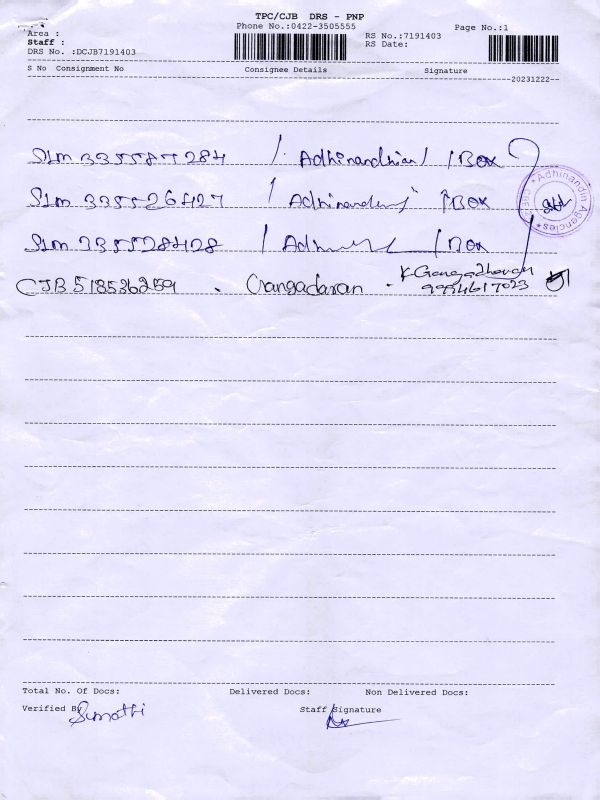 TPC/CJB DRS - PNP
Phone No.:0422-3505555
Page No.:1
Area :
Staff :
DRS No. :DCJB7191403
RS No.:7191403
RS Date:
S No Consignment No Consignee Details Signature
20231222
SLM 335587284 / Adhinandhan / 1 Box
SLM 335526427 / 1 Box
SLM 335528428 / 1 Box
Adhinandin Agencies
CJB 518536259 - Gangadaran - K. Gangadharan
9994617023
Total No. Of Docs: Delivered Docs: Non Delivered Docs:
Verified By Sumathi Staff Signature